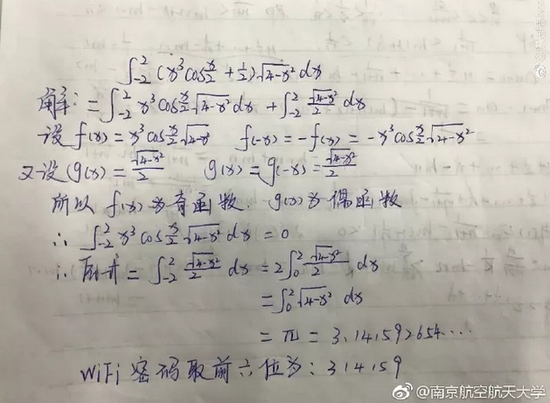 ∫₋₂² (x³cos x/2 + 1/2)√(4-x²) dx
解: = ∫₋₂² x³cos x/2 √(4-x²) dx + ∫₋₂² √(4-x²)/2 dx
设 f(x) = x³cos x/2 √(4-x²) f(-x) = -f(x) = -x³cos x/2 √(4-x²)
又设 g(x) = √(4-x²)/2 g(x) = g(-x) = √(4-x²)/2
所以 f(x) 为奇函数 g(x) 为偶函数
∴ ∫₋₂² x³cos x/2 √(4-x²) dx = 0
∴ 原式 = ∫₋₂² √(4-x²)/2 dx = 2∫₀² √(4-x²)/2 dx
= ∫₀² √(4-x²) dx
= π = 3.141592654...
WiFi 密码取前六位为: 314159
@南京航空航天大学